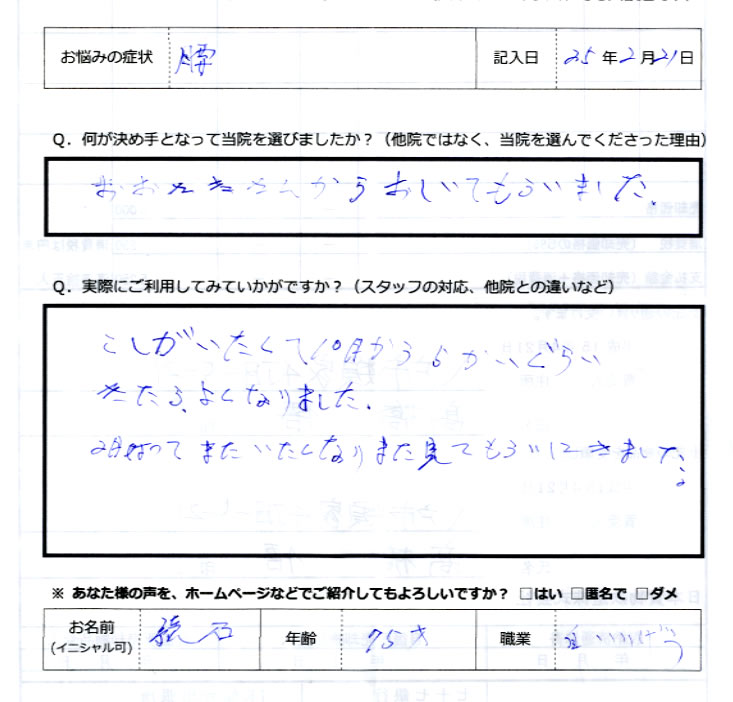 お悩みの症状 腰 記入日 25年2月21日
Q. 何が決め手となって当院を選びましたか？（他院ではなく、当院を選んでくださった理由）
おおききさんからおしいてもらいました。
Q. 実際にご利用してみていかがですか？（スタッフの対応、他院との違いなど）
こしがいたくて10月から5かいぐらい
きたら、よくなりました。
2月なってまたいたくなりまた見てもらいにきました
※ あなた様の声を、ホームページなどでご紹介してもよろしいですか？ □はい □匿名で □ダメ
お名前 年齢 75才 職業
(イニシャル可)